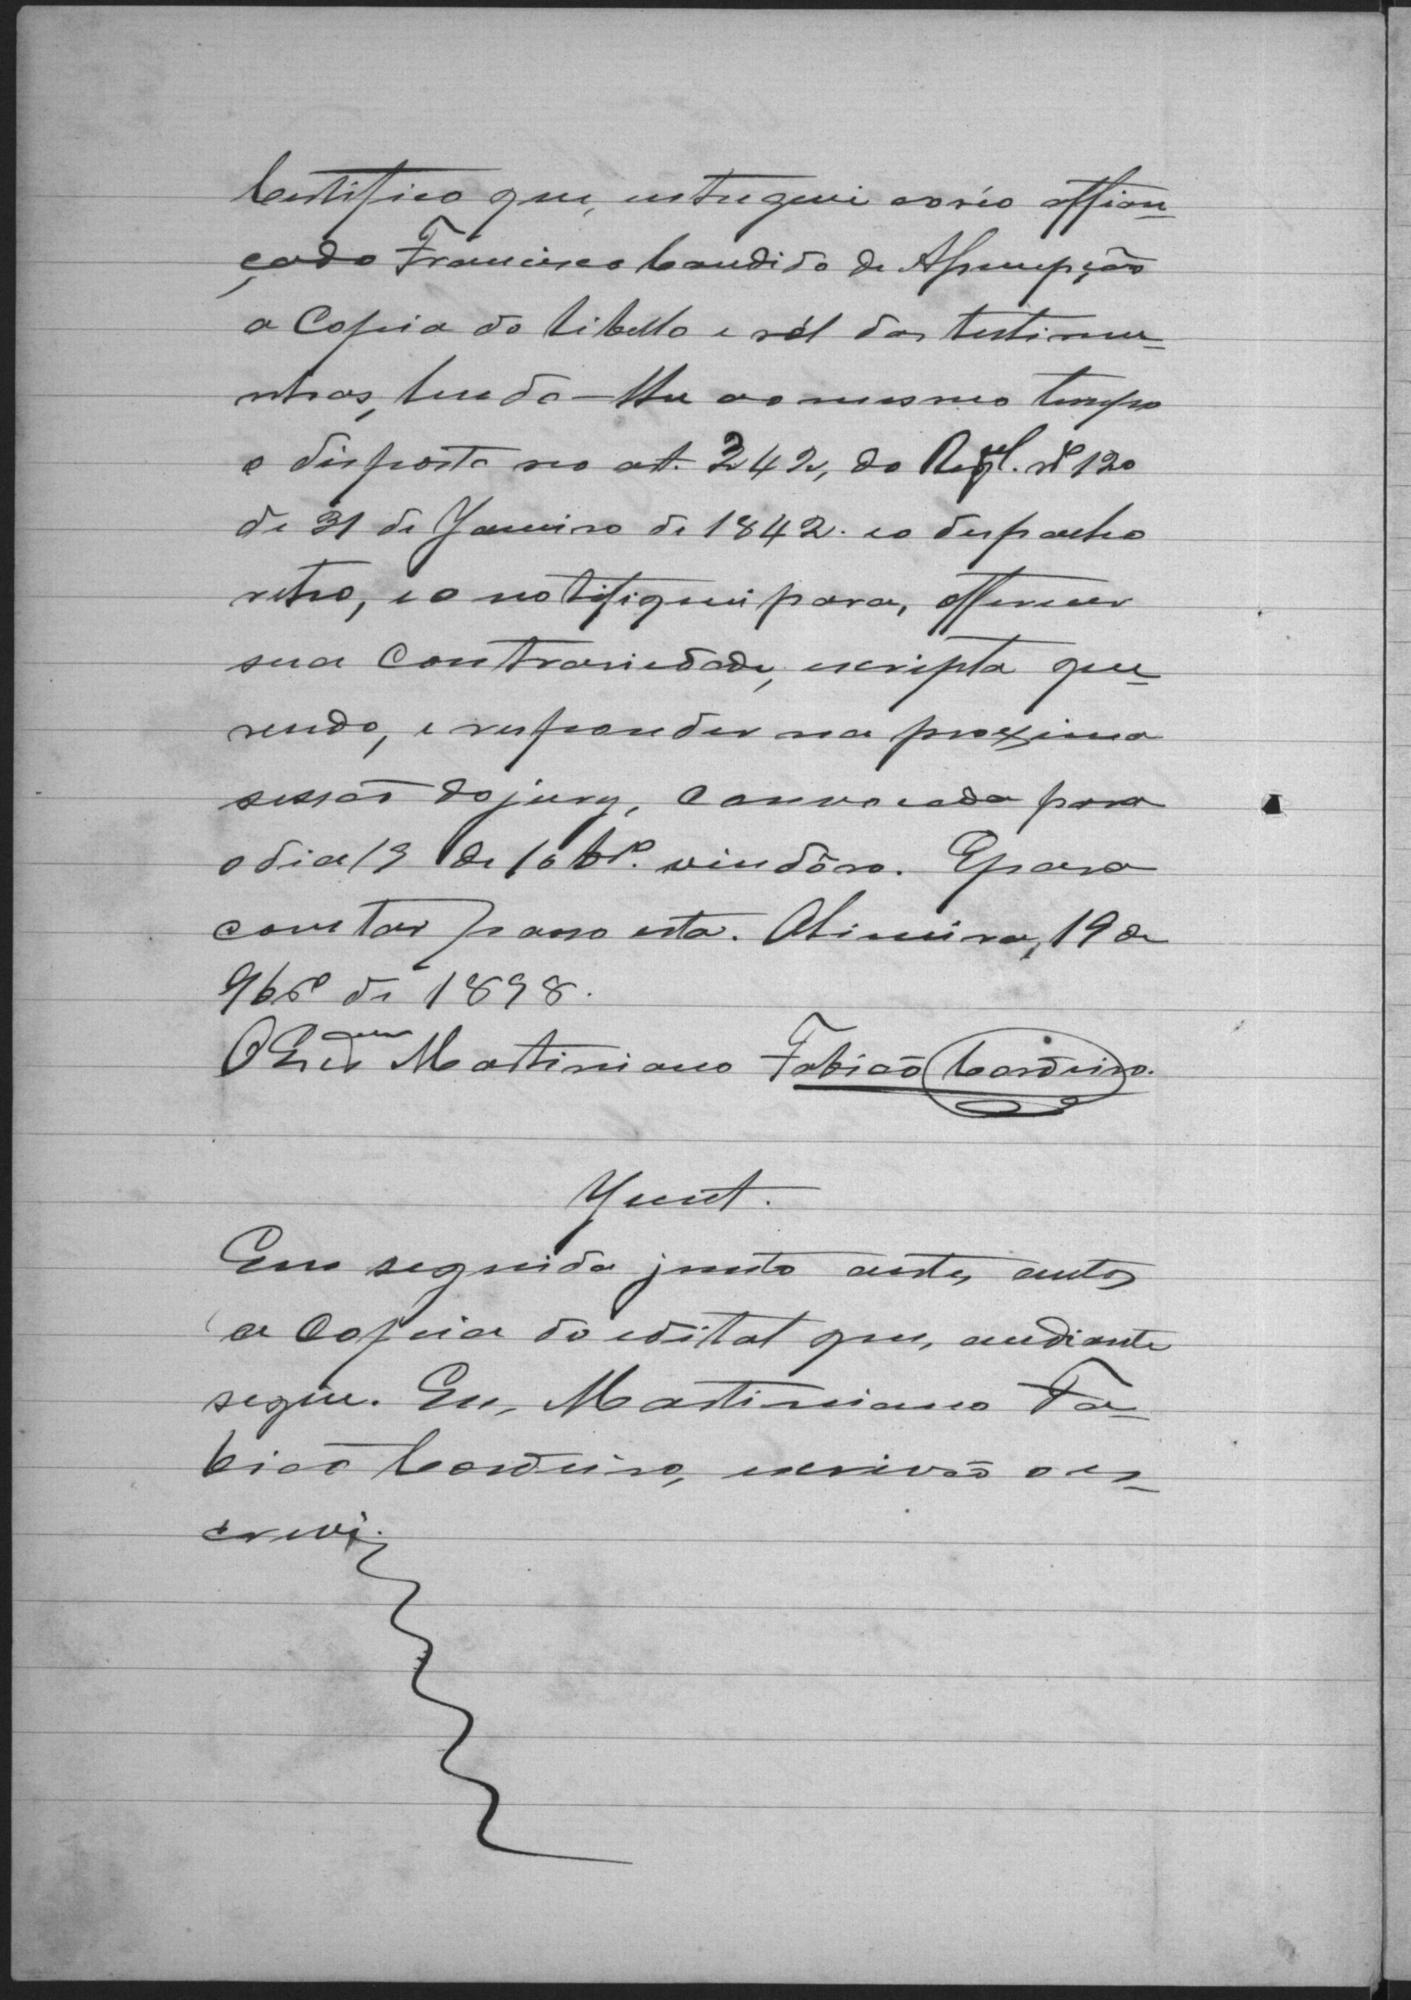 Certifico que, entreguei ao réo affian-
çado Francisco Candido de Assumpção
a Copia do libello e ról das testimu-
nhas, lendo-lhe ao mesmo tempo
o disposto no art. 342, do Regul. nº 120
de 31 de Janeiro de 1842. eo despacho
retro, e o notifiquei para, offerecer
sua Contrariedade, escripta que-
rendo, e responder na proxima
sessão do jury, Convocada para
o dia 13 de 10brº. vindôro. E para
constar passo esta. 19 de
9brº de 1898.
O Escrivam Martiniano Fabião Cordeiro.
Junt.
Em seguida junto aestes autos
a Copia do edital que, aediante
segue. Eu, Martiniano Fa-
bião Cordeiro, escrivão o es-
crevi.